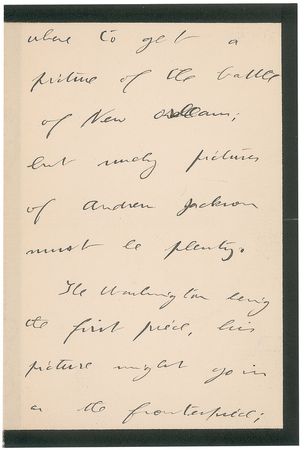 where to get a
picture of the battle
of New Orleans;
but surely pictures
of Andrew Jackson
must be plenty.
The Washington being
the first piece, his
picture might go in
as the frontispiece;